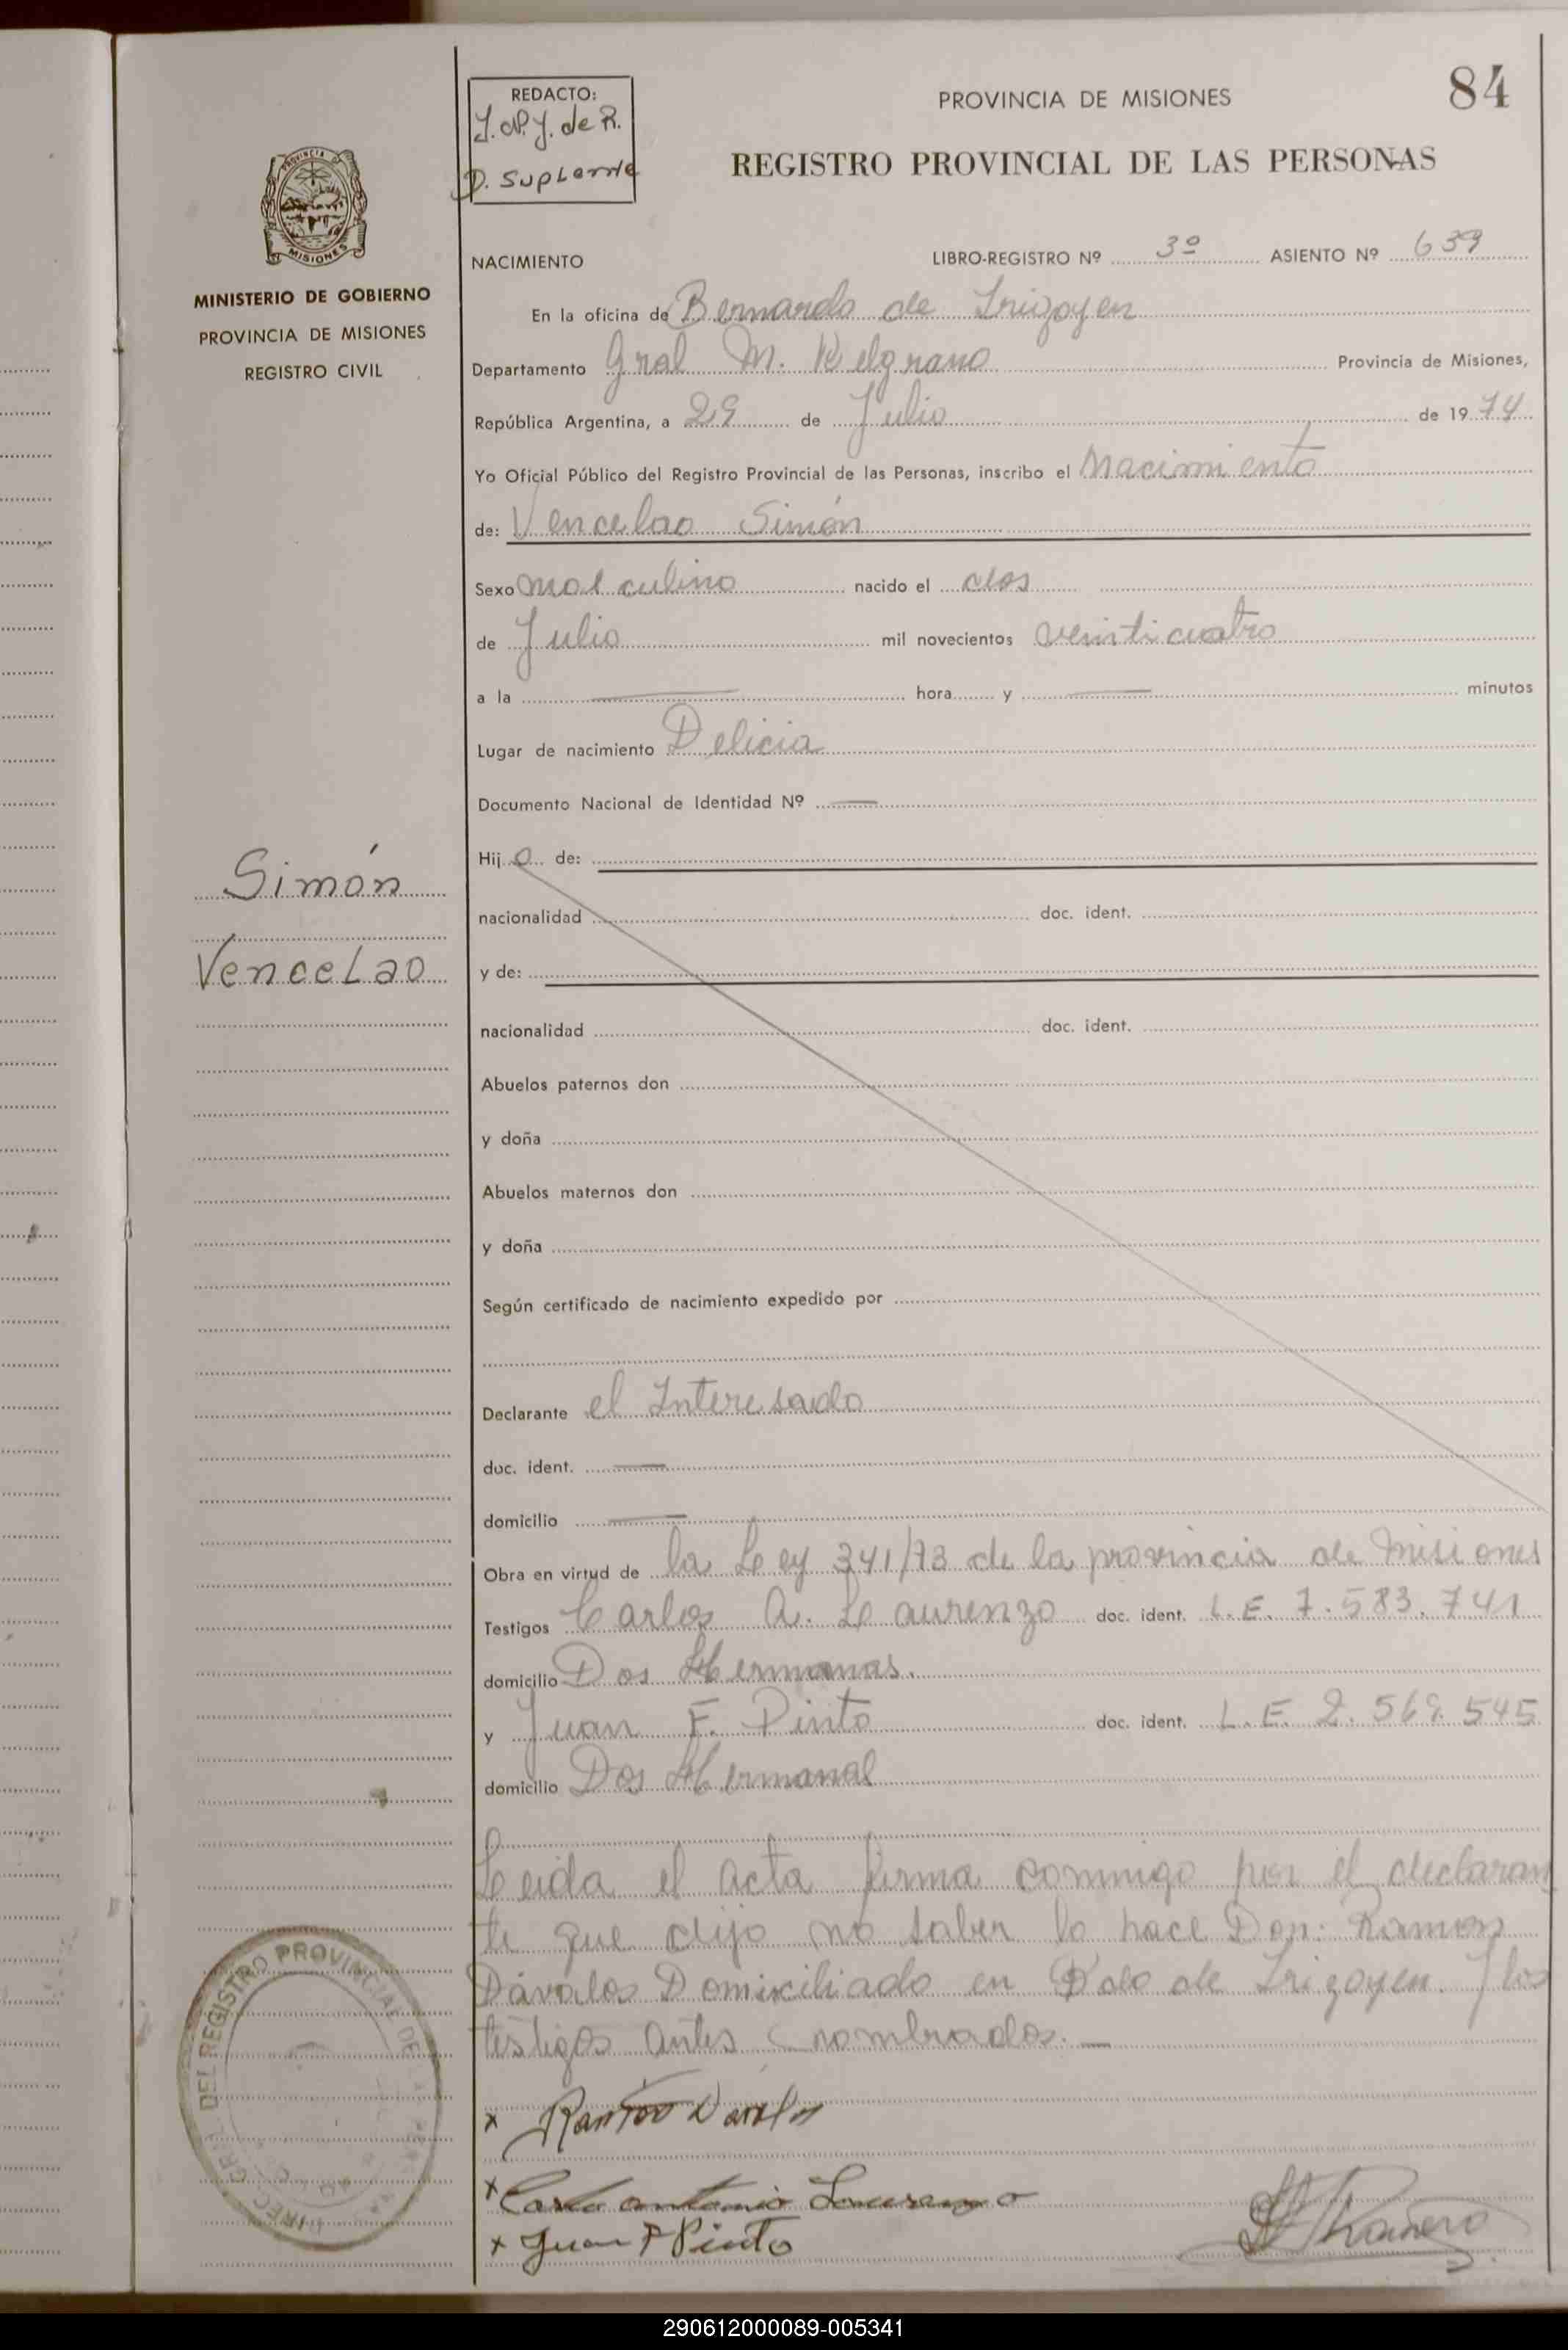 84
REDACTO:
J. N. J. de R.
D. Suplente
PROVINCIA DE MISIONES
REGISTRO PROVINCIAL DE LAS PERSONAS
PROVINCIA
MISIONES
MINISTERIO DE GOBIERNO
PROVINCIA DE MISIONES
REGISTRO CIVIL
NACIMIENTO LIBRO-REGISTRO Nº 3º ASIENTO Nº 639
En la oficina de Bernardo de Irigoyen
Departamento Gral M. Belgrano Provincia de Misiones,
República Argentina, a 29 de Julio de 1974
Yo Oficial Público del Registro Provincial de las Personas, inscribo el Nacimiento
de: Vencelao Simón
Sexo masculino nacido el dos
de Julio mil novecientos veinticuatro
a la hora y minutos
Lugar de nacimiento Delicia
Documento Nacional de Identidad Nº
Hijo de:
Simón
nacionalidad doc. ident.
Vencelao
y de:
nacionalidad doc. ident.
Abuelos paternos don
y doña
Abuelos maternos don
y doña
Según certificado de nacimiento expedido por
Declarante el Interesado
doc. ident.
domicilio
Obra en virtud de la Ley 341/73 de la provincia de Misiones
Testigos Carlos A. Laurenzo doc. ident. L.E. 7.583.741
domicilio Dos Hermanas.
y Juan F. Pinto doc. ident. L.E. 2.569.545
domicilio Dos Hermanas
Leida el acta firma conmigo por el declaran
te que dijo no saber lo hace Don: Ramon
Dávalos Domiciliado en Bdo de Irigoyen. Y los
testigos antes nombrados.
DIREC. GRAL. DEL REGISTRO PROVINCIAL DE
x Ramon Davalos
x Carlo Antonio Lourenzo
x Juan F Pinto
290612000089-005341